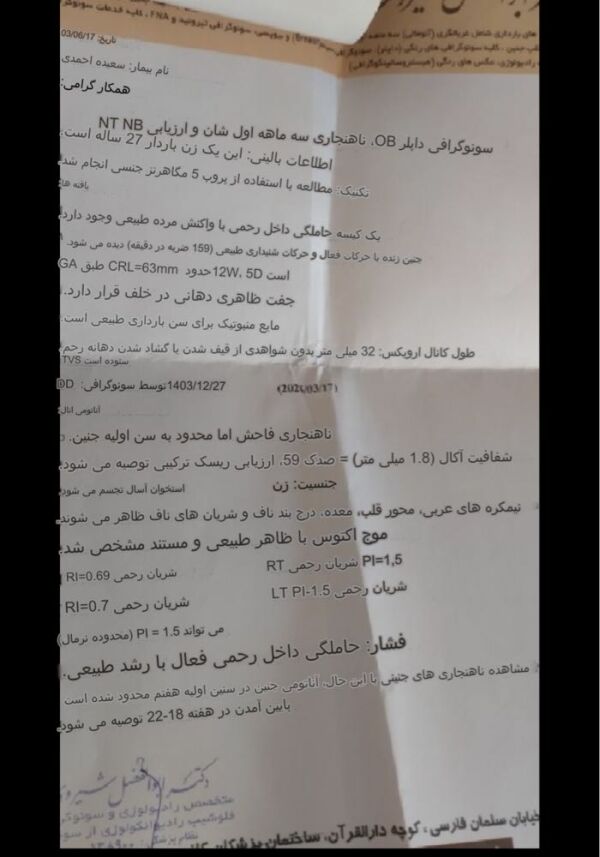 های بارداری شامل غربالگری (آنومالی) سه
قلب جنین ، کلیه سونوگرافی های رنگی (داپلر)
و بیوپسی، سونوگرافی تیروئید و FNA ، کلیه خدمات
رادیولوژی، عکس های رنگی (هیستروسالپنگوگرافی)
تاریخ: 03/06/17
نام بیمار: سعیده احمدی
همکار گرامی:
سونوگرافی داپلر OB، ناهنجاری سه ماهه اول شان و ارزیابی NT NB
اطلاعات بالینی: این یک زن باردار 27 ساله است.
تکنیک: مطالعه با استفاده از پروپ 5 مگاهرتز جنسی انجام شد
یافته ها:
یک کیسه حاملگی داخل رحمی با واکنش مرده طبیعی وجود دارد
جنین زنده با حرکات فعال و حرکات شنیداری طبیعی (159 ضربه در دقیقه) دیده می شود.
است 12W، 5D حدود CRL=63mm طبق GA
جفت ظاهری دهانی در خلف قرار دارد.
مایع منیوتیک برای سن بارداری طبیعی است
طول کانال ارویکس: 32 میلی متر بدون شواهدی از قیف شدن یا گشاد شدن دهانه رحم
ستوده است TVS
(2025/03/17) 1403/12/27 توسط سونوگرافی: DD
آناتومی اتال:
ناهنجاری فاحش اما محدود به سن اولیه جنین.
شفافیت آکال (1.8 میلی متر) = صدک 59، ارزیابی ریسک ترکیبی توصیه می شود
استخوان آسال تجسم می شود جنسیت: زن
نیمکره های عربی، محور قلب، معده، درج بند ناف و شریان های ناف ظاهر می شوند
موج اکتوس با ظاهر طبیعی و مستند مشخص شد
شریان رحمی RT PI=1,5
شریان رحمی RI=0.69
شریان رحمی LT PI-1.5
شریان رحمی RI=0.7
می تواند PI = 1.5 (محدوده نرمال)
فشار: حاملگی داخل رحمی فعال با رشد طبیعی.
مشاهده ناهنجاری های جنینی با این حال، آناتومی جنین در سنین اولیه هفتم محدود شده است
پایین آمدن در هفته 18-22 توصیه می شود
متخصص رادیولوژی و
خیابان سلمان فارسی ، کوچه دارالقرآن، ساختمان پزشکان